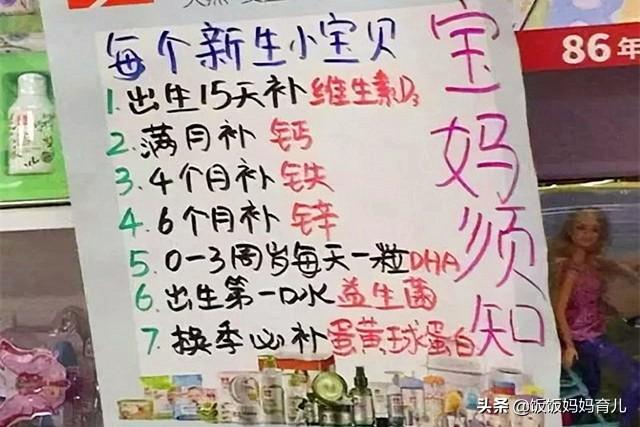 每个新生小宝贝
1.出生15天补维生素D3
2.满月补 钙
3.4个月补 铁
4.6个月补 锌
5.0-3周岁每天一粒DHA
6.出生第一口水益生菌
7.换季必补蛋黄球蛋白
宝妈须知
86年
头条@饭饭妈妈育儿